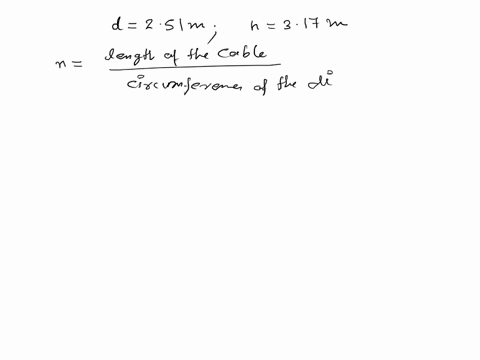 d = 2.51 m ; h = 3.17 m
n = length of the cable
circumference of the di